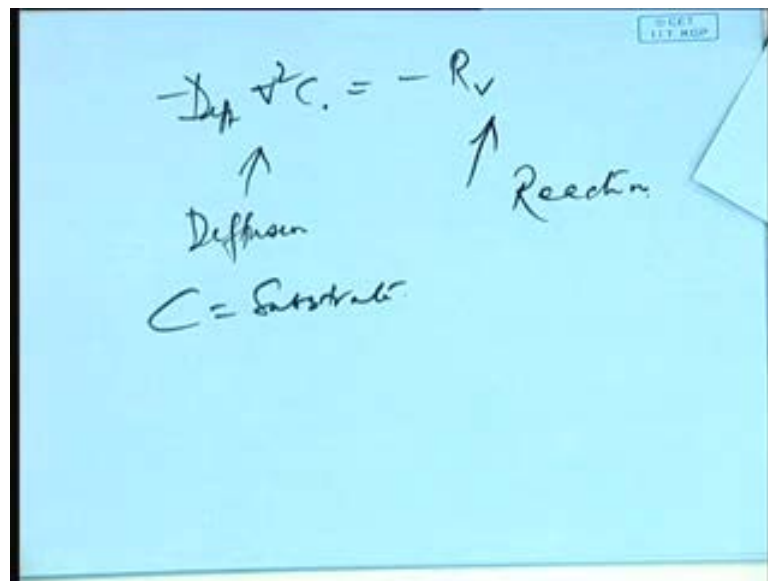 © CET
I.I.T. KGP
-D_eff ∇²C. = - R_v
↑ ↑
Diffusion Reaction
C = Substrate